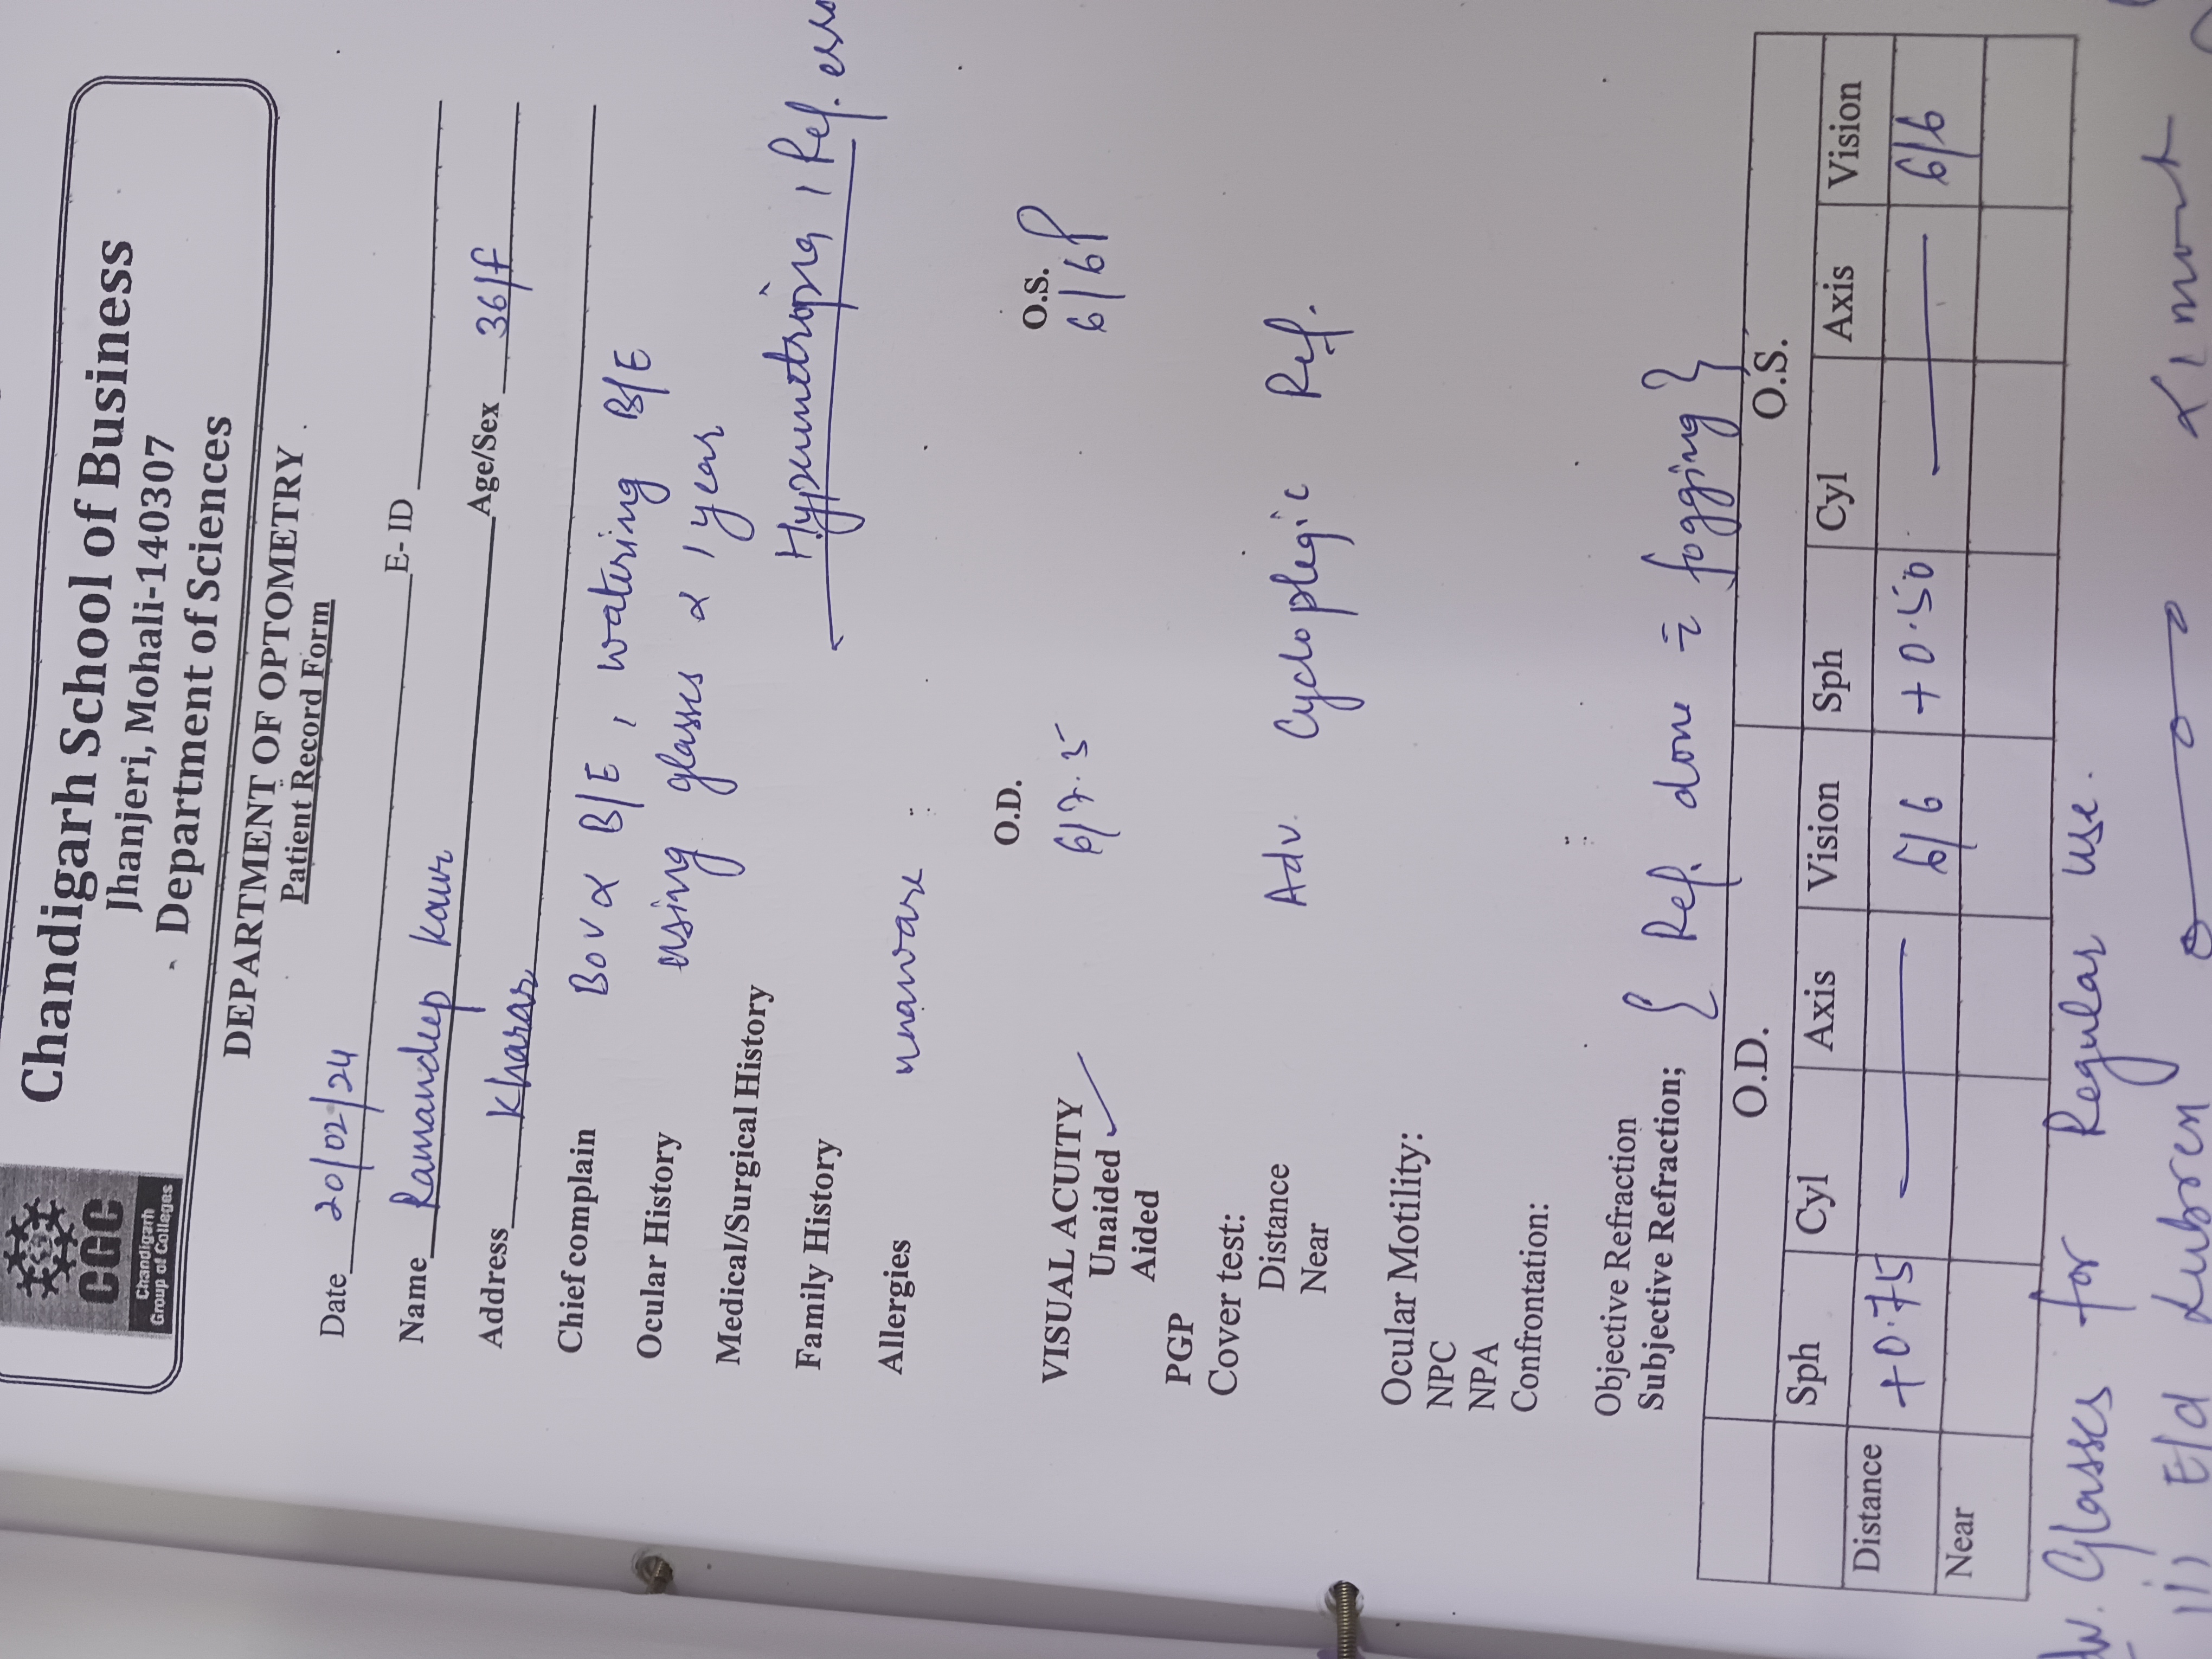 CGC
Chandigarh
Group of Colleges
Chandigarh School of Business
Jhanjeri, Mohali-140307
Department of Sciences
DEPARTMENT OF OPTOMETRY
Patient Record Form
Date 20/02/24 E- ID
Name Ramandeep Kaur Age/Sex 36/f
Address Kharar
Chief complain BOV α B/E, watering B/E
Ocular History using glasses α 1 year
Medical/Surgical History
Hypermetropia, Ref.
Family History
Allergies unaware
O.D. O.S.
VISUAL ACUITY 6/7.5 6/6P
Unaided ✓
Aided
PGP
Cover test:
Distance
Adv. Cycloplegic Ref.
Near
Ocular Motility:
NPC
NPA
Confrontation:
Objective Refraction
Subjective Refraction; { Ref. done c̄ fogging }
O.D. O.S.
Sph Cyl Axis Vision Sph Cyl Axis Vision
Distance +0.75 — 6/6 +0.50 — 6/6
Near
Glasses for Regular use.
E/d Lubren